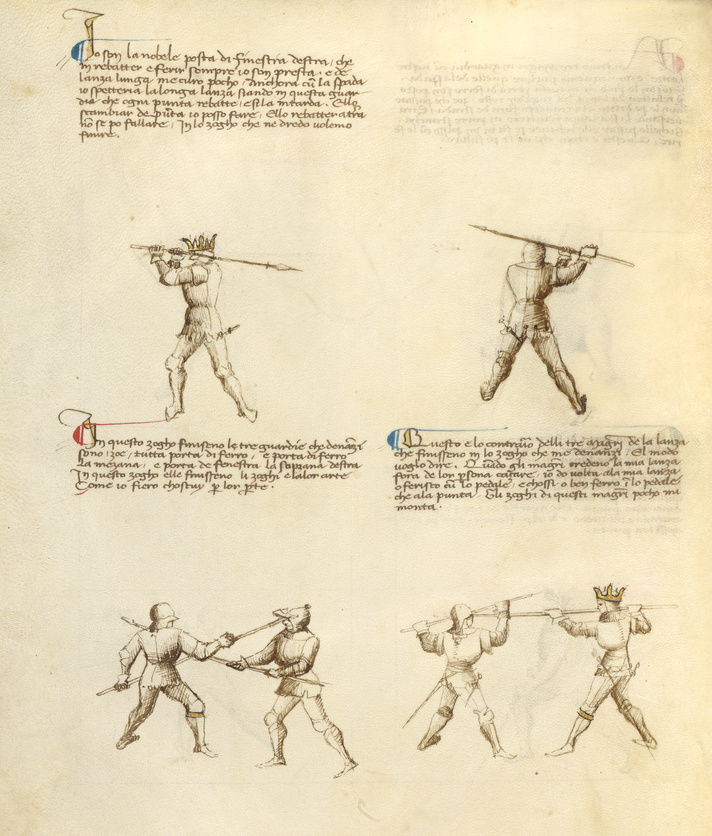 Io son la nobele posta di finestra destra, che
in rebatter e ferir sempre io son presta. e de
lanza lunga me curo pocho. Anchora cum la spada
io spetteria la longa lanza stando in questa guar
dia che ogna punta rebatte, e si la intarda. Ello
scambiar de punta io posso fare, Ello rebatter a tra
non se po fallare, In lo zogho che me dredo volemo
finire.
In questo zogho finiseno le tre guardie che denanzi
sono, zoe, tutta porta di ferro, e porta di ferro
la mezana, e porta de fenestra la soprana destra
In questo zogho elle finisseno li zoghi e la lor arte
Come io fiero chostuy per lor parte.
Questo e lo contrario delli tre magistri de la lanza
che finisseno in lo zogho che me denanzi, El modo
voglio dire. Quando gli magistri credeno la mia lanza
fora de lor persona, io do volta ala mia lanza,
o feristo cum lo pedale, e chossi o ben ferro in lo pedale,
che ala punta. Gli zoghi di questi magistri pocho mi
monta.